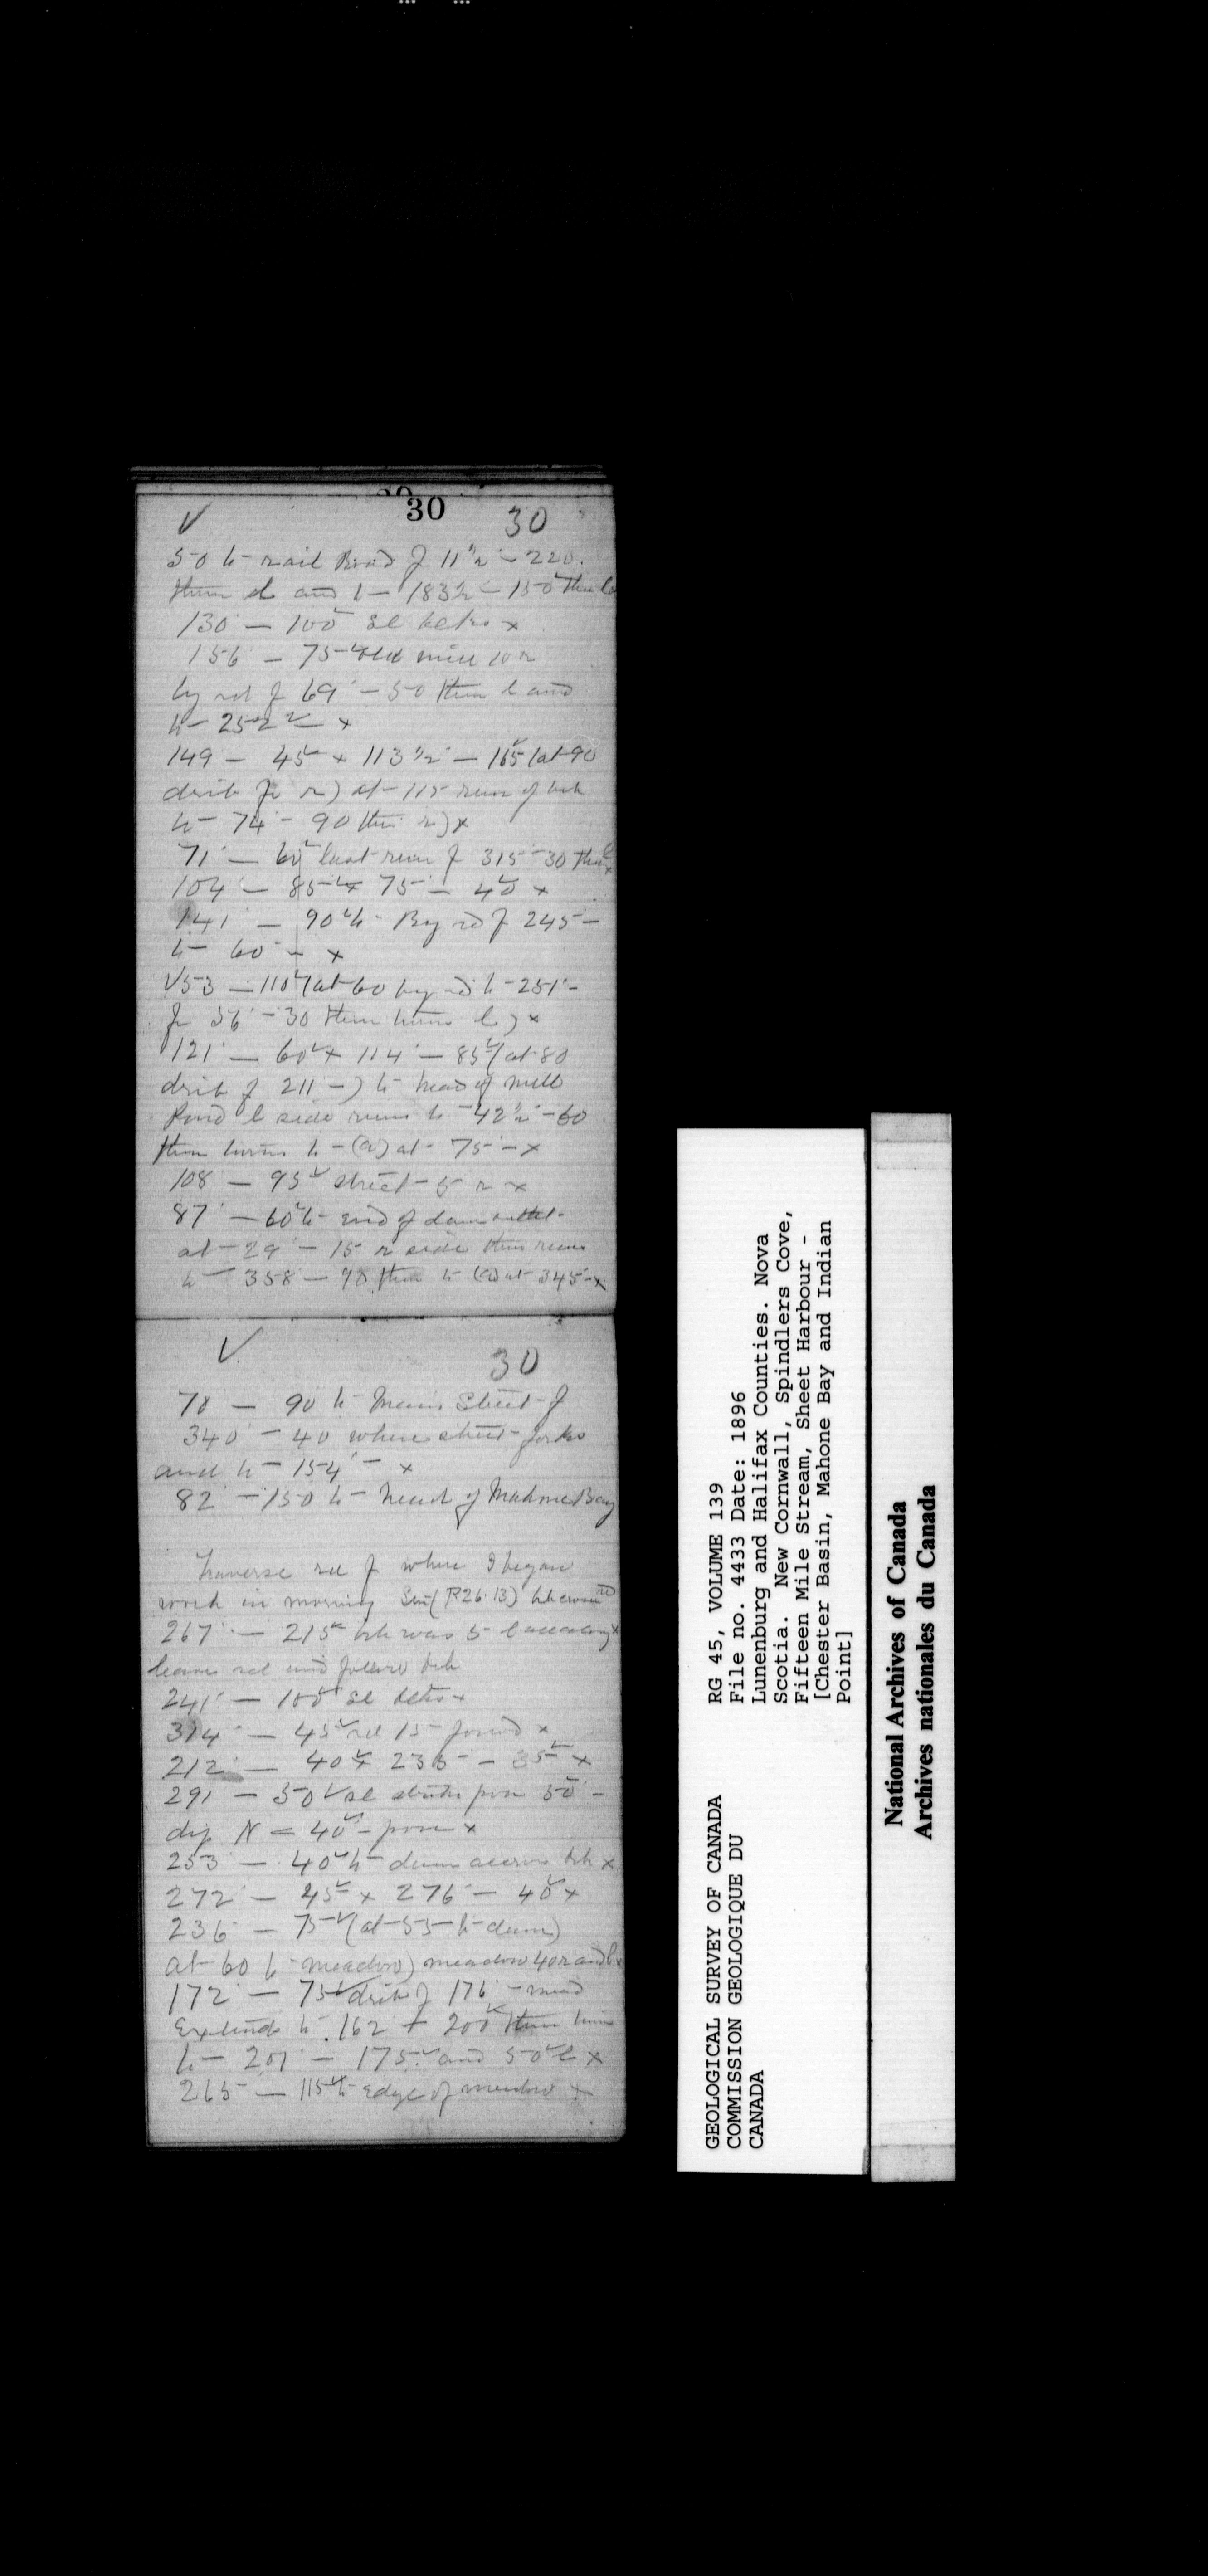 30
30
50 to rail Road f 11½° – 220.
then l and t – 183½ – 150 then l
130° – 100 sl blks x
156 – 75 old mill 10 r
by rd f 69° – 50 then l and
to – 252 – x
149 – 45 x 113½° – 165 (at 90
drift f r) at – 115 runs of bk
to – 74° – 90 then r) x
71° – 60 last run f 315 – 30 then l x
104° – 85 x 75° – 40 x
141° – 90 to – By rd f 245 –
to – 60° – x
153 – 110 (at 60 by rd to – 251° –
f 56° – 30 then turns l) x
121° – 60 x 114° – 85 (at 80
drift f 211° –) to head of mill
Pond l side runs to – 42½° – 60
then turns to – (a) at – 75° – x
108 – 95 street – 5 r x
87° – 60 to – end of dam outlet –
at – 29° – 15 r side then runs
to – 358 – 90 then to (a) at 345 – x
30
78 – 90 to Main Street – f
340° – 40 where street – forks
and to – 154° – x
82 – 150 to – head of Mahone Bay
Traverse rd f where I began
work in morning (P 26. 13) bk crosses rd
267° – 215 bk was 5 l all along x
leave rd and follow bk
241° – 100 sl blks x
314° – 45 rd 15 – forward x
212° – 40 x 235 – 35 x
291 – 50 sl strike from 50° –
dip N = 40° – from x
253° – 40 to – dam across bk x
272° – 45 x 276° – 40 x
236 – 75 (at – 55 – to – dam)
at – 60 to – meadow) meadow 40 r and l x
172° – 75 drift f 176° – mead
Extends to 162° + 200 then turns
to – 201° – 175 and 50 l x
265 – 115 to – Edge of meadow x
GEOLOGICAL SURVEY OF CANADA
COMMISSION GEOLOGIQUE DU
CANADA
RG 45, VOLUME 139
File no. 4433 Date: 1896
Lunenburg and Halifax Counties. Nova
Scotia. New Cornwall, Spindlers Cove,
Fifteen Mile Stream, Sheet Harbour -
[Chester Basin, Mahone Bay and Indian
Point]
National Archives of Canada
Archives nationales du Canada